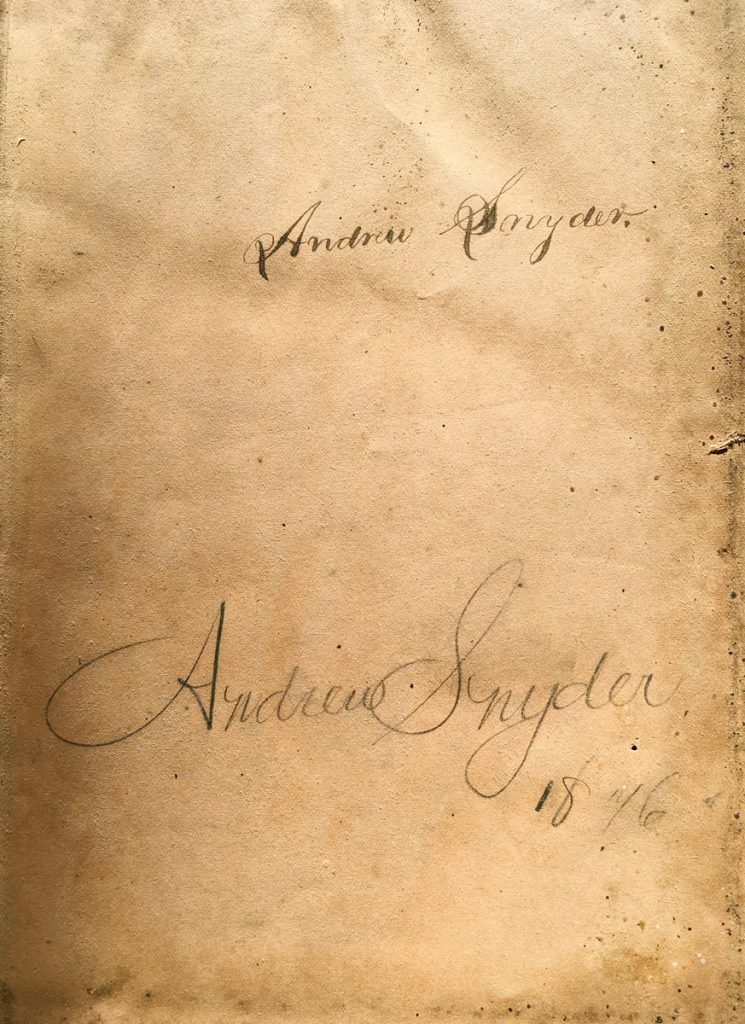 Andrew Snyder.
Andrew Snyder.
1876